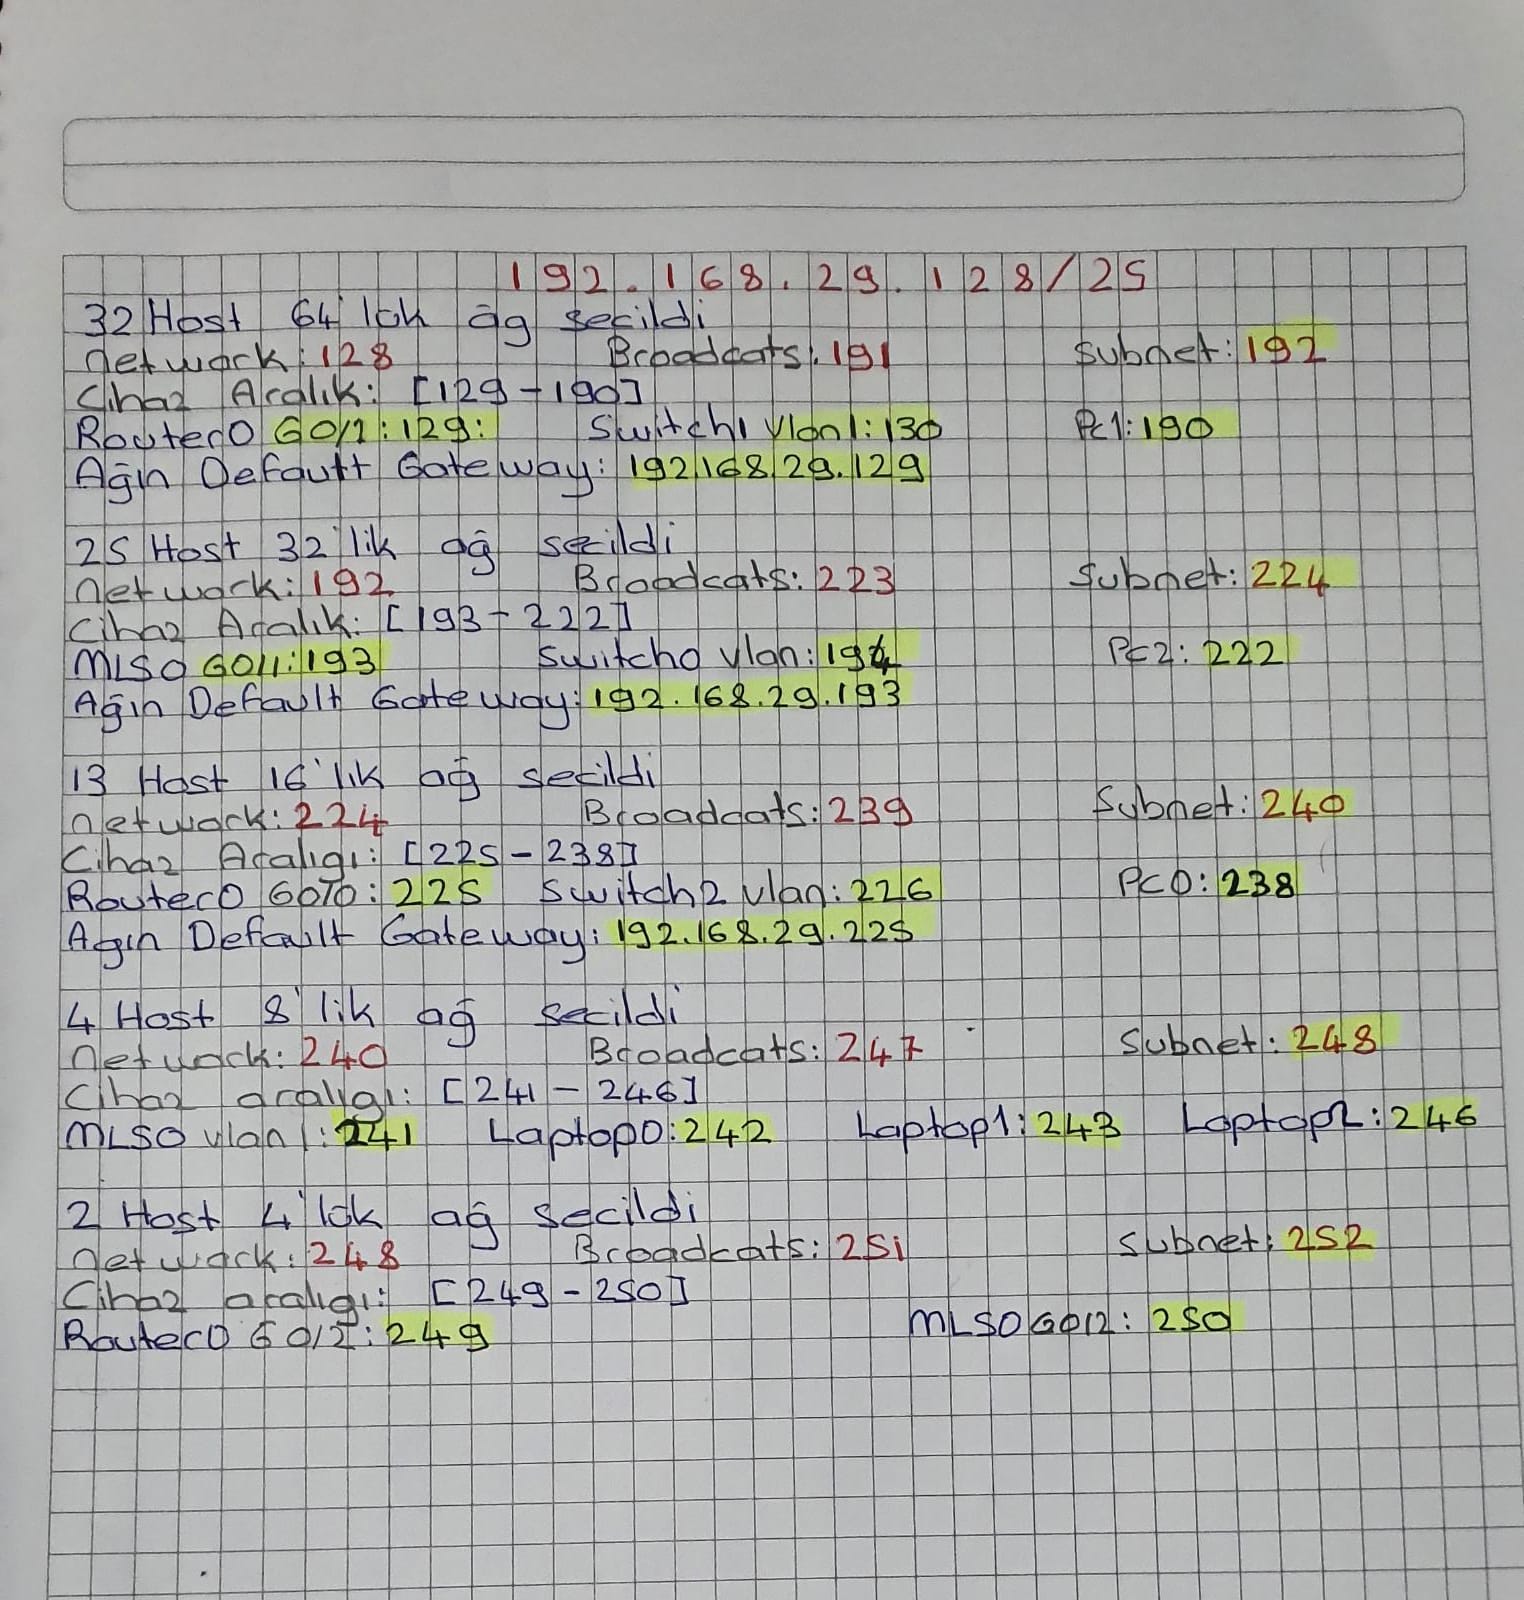 192.168.29.128/25
32 Host 64'lük ağ seçildi
network: 128 Broadcats: 191 Subnet: 192
Cihaz Aralık: [129-190]
Router0 G0/1: 129: Switch1 Vlan1: 130 Pc1: 190
Ağın Default Gateway: 192.168.29.129
25 Host 32'lik ağ seçildi
network: 192 Broadcats: 223 Subnet: 224
Cihaz Aralık: [193-222]
MLS0 G011: 193 Switch0 Vlan: 194 PC2: 222
Ağın Default Gateway: 192.168.29.193
13 Host 16'lık ağ seçildi
network: 224 Broadcats: 239 Subnet: 240
Cihaz Aralıgı: [225-238]
Router0 G0/0: 225 Switch2 Vlan: 226 PC0: 238
Agın Default Gateway: 192.168.29.225
4 Host 8'lik ağ seçildi
network: 240 Broadcats: 247 Subnet: 248
Cihaz aralıgı: [241-246]
MLS0 vlan 1: 241 Laptop0: 242 Laptop1: 243 Laptop2: 246
2 Host 4'lük ağ seçildi
network: 248 Broadcats: 251 Subnet: 252
Cihaz aralıgı: [249-250]
Router0 G0/2: 249 MLS0 G0/2: 250